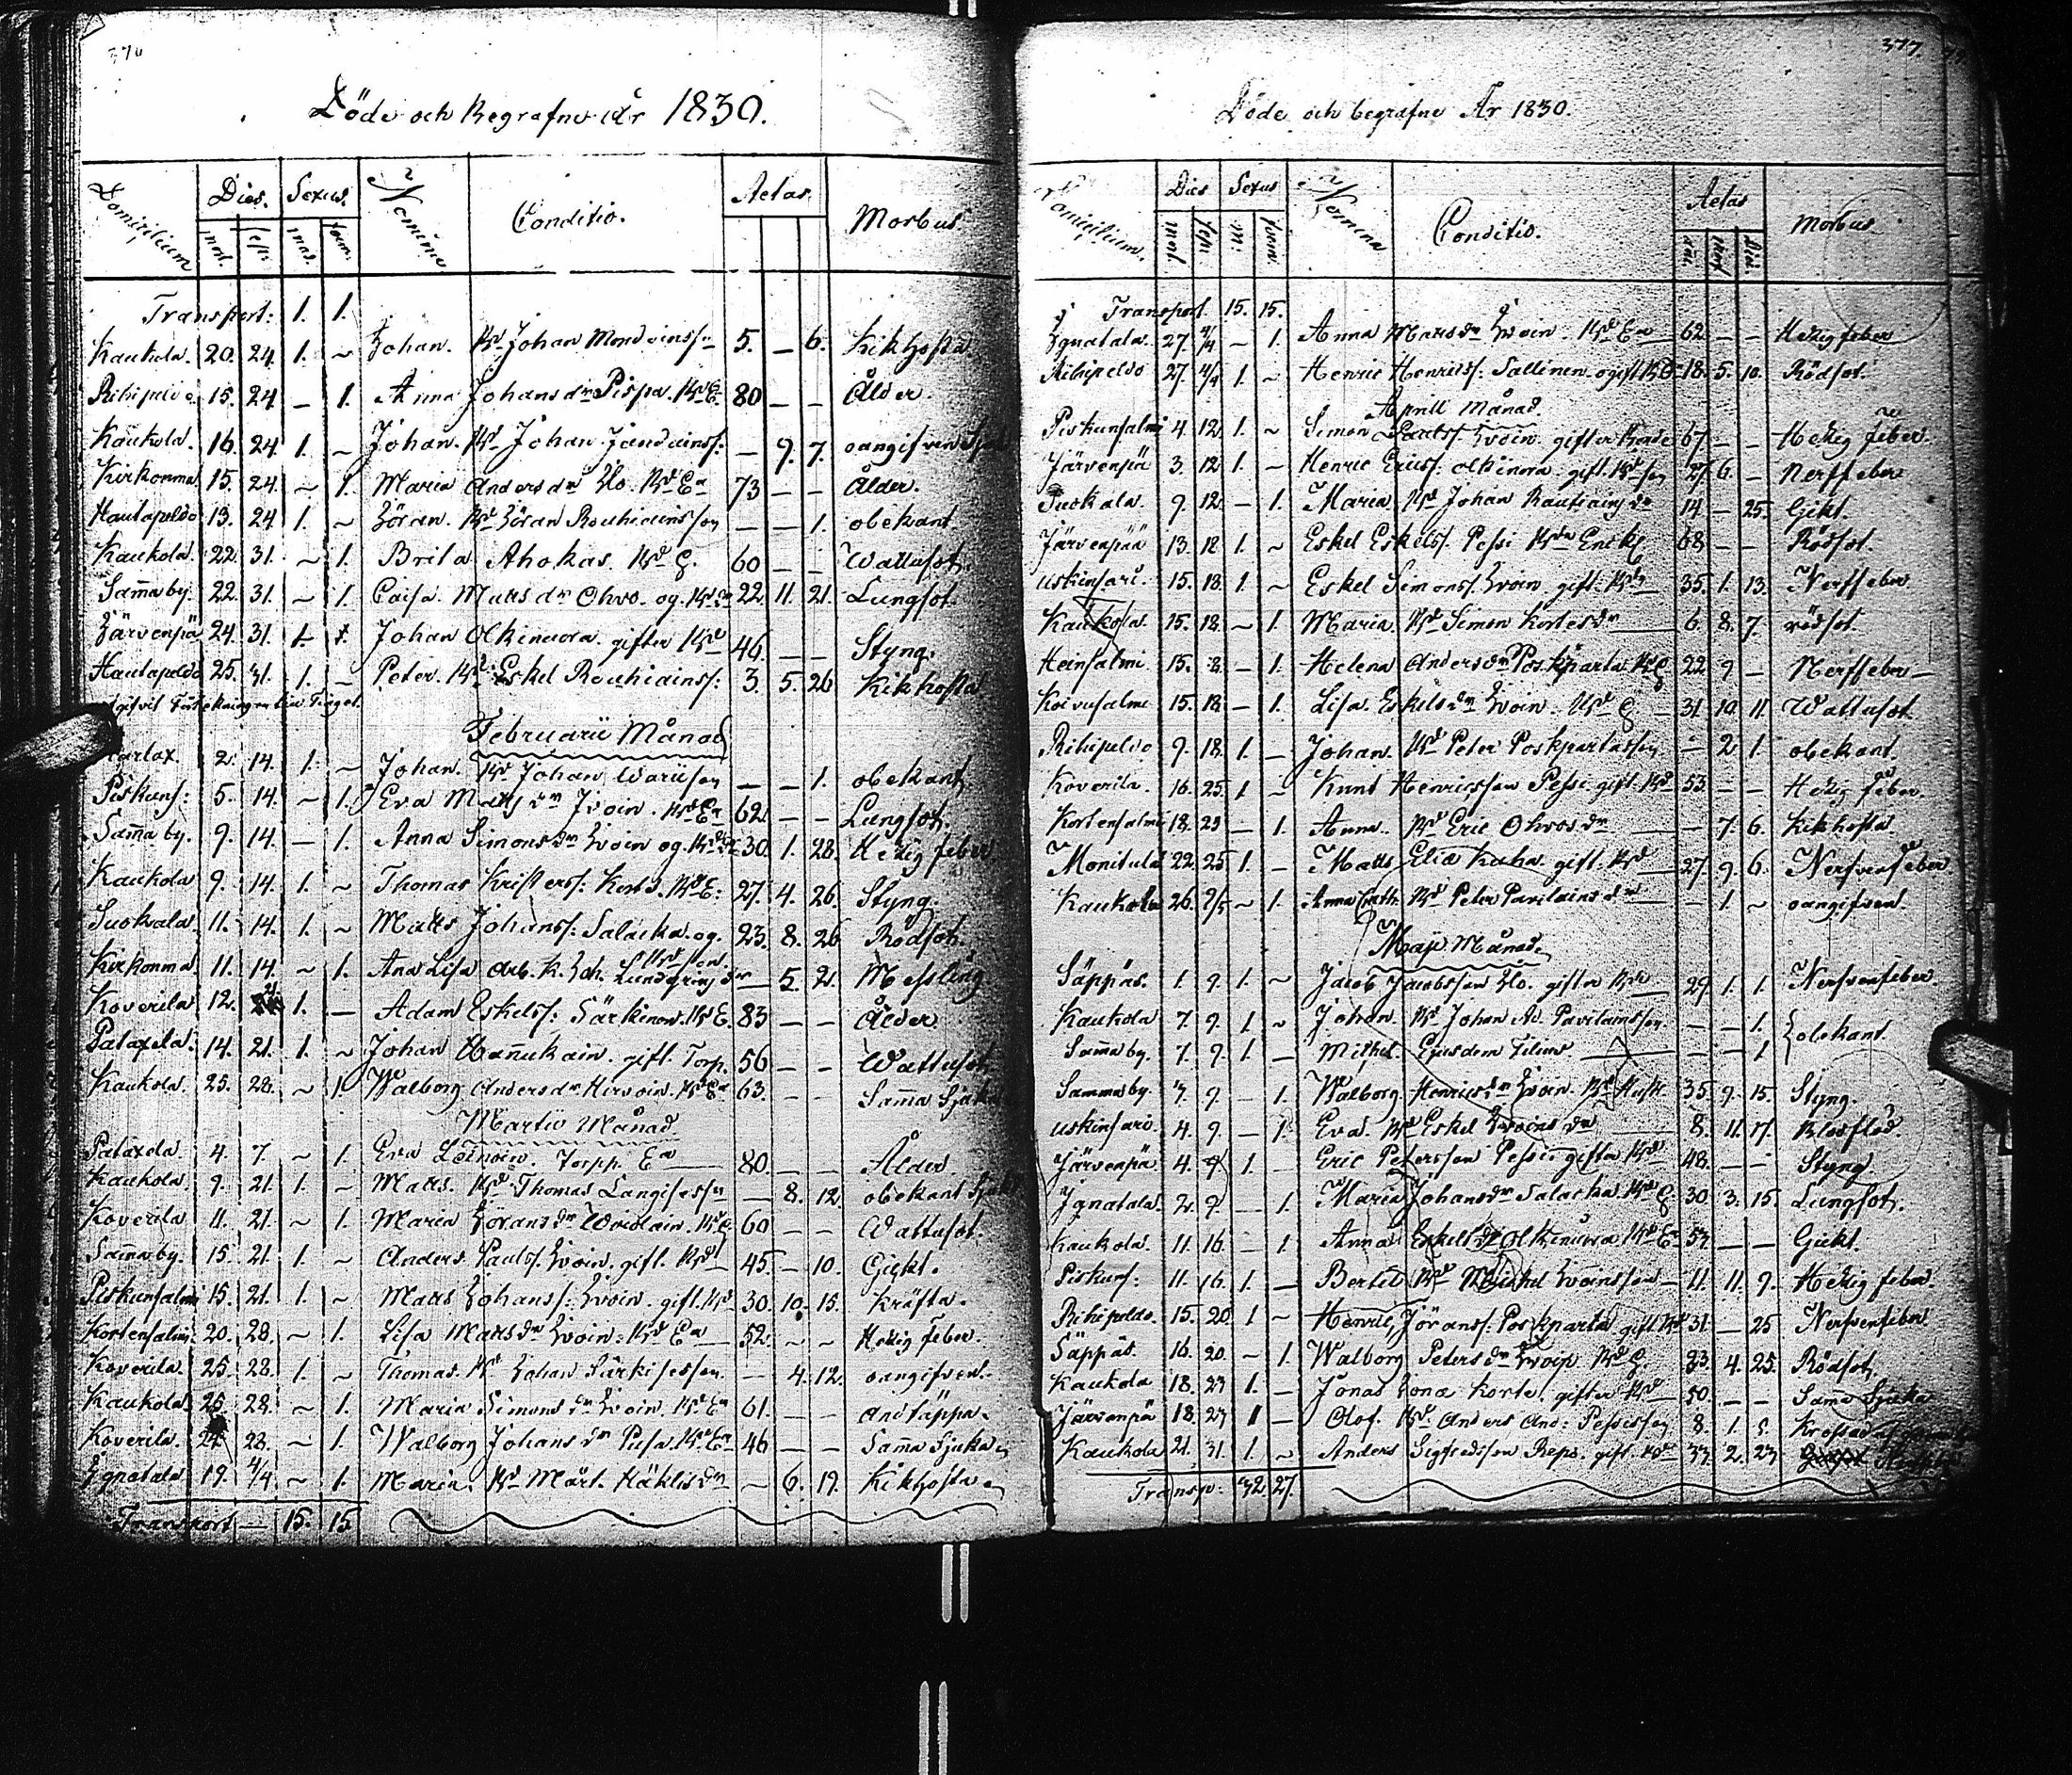 376
Döde och Begrafne år 1830.
Domicilium Dies. Sexus. Nomina Conditio. Aetas. Morbus
mort. sep. mas. foem.
Transport: 1. 1.
Kaukola. 20. 24. 1. ~ Johan. Bd Johan Mondainss 5. — 6. Kikhosta.
Rihipeldo. 15. 24. — 1. Anna Johansdr Pispa. Bd E. 80 — — Ålder.
Kaukola. 16. 24. 1. ~ Johan. Bd Johan Jandainss: — 9. 7. oangifven
Kirkonma 15. 24. ~ 1. Maria Andersdr Ilo. Bd Ea 73 — — Ålder.
Hautapeldo 13. 24 1. ~ Jöran. Bd Jöran Rouhiainsson — — 1. obekant.
Kaukola. 22. 31. ~ 1. Brita Ahokas. Bd E. 60 — — Wattusot.
Sam̄aby. 22. 31. ~ 1. Caisa. Mattsdr Ohvo. og. Bd 22. 11. 21. Lungsot.
Järvenpä 24. 31. 1. Johan Olkinuora. gifter Bd 46. — — Styng.
Hautapeldo 25. 31. 1. — Peter. Bd Eskel Rouhiainss: 3. 5. 26 Kikhosta
Februarii Månad
2. 14. 1. ~ Johan. Bd Johan Wariison — — 1. obekant
Piskuns: 5. 14. ~ 1. Eva Mattsdr Ivoin. Bd Ea 62. — — Lungsot.
Sam̄aby. 9. 14. — 1. Anna Simonsdr Ivoin og. Bd 30. 1. 28. Hetzig feber
Kaukola 9. 14. 1. ~ Thomas Kristerss: Korte. Bd E: 27. 4. 26. Styng.
Suokala 11. 14. 1. ~ Matts Johanss: Salacka. og. Bdson 23. 8. 26 Rödsot.
Kirkonma. 11. 14. ~ 1. Ana Lisa Arb. K. Joh. Lundgrens dr — 5. 2. Messling
Koverila 12. 21. 1. — Adam Eskelss: Särkinen. Bd E. 83 — — Ålder
Pataxela. 14. 21. 1. ~ Johan Han̄ukain. gift. Torp. 56 — — Wattusot.
Kaukola. 25. 28. ~ 1. Walborg Andersdr Hirvoin. Bd Ea 63. — — Sam̄a Sjuka
Martii Månad
Pataxela. 4. 7. ~ 1. Eva Torpp. Ea 80. — — Ålder.
Kaukola. 9. 21. 1. ~ Matts. Bd Thomas Langisessn — 8. 12. obekant Sjuk
Koverila 11. 21. ~ 1. Maria Jöransdr Bd E. 60 — — Wattusot.
Sam̄aby. 15. 21. 1. ~ Anders. Paulss. Ivoin. gift. Bd 45. — 10. Gickt.
Piskunsalmi 15. 21. 1. ~ Matts Johanss: Ivoin. gift. Bd 30. 10. 15. Kräfta.
Kortensalmi. 20. 28. ~ 1. Lisa Mattsdr Ivoin: Bd Ea 52. ~ ~ Hetzig Feber.
Koverila. 25. 28. 1. ~ Thomas. Bd Johan Särkisesson. — 4. 12. oangifven.
Kaukola. 25. 28. ~ 1. Maria Simonsdr Ivoin. Bd Ea 61. — — Andtäppa.
Koverila. 28. ~ 1. Walborg Johansdr Pusa. Bd Ea 46 — — Sam̄a Sjuka
Ignatala 19. 4/4 ~ 1. Maria. Bd Mårt. Häklisdr ~ 6. 19. Kikhosta
Transport — 15. 15.
377
Döde och begrafne År 1830.
Domicilium. Dies Sexus Nomina Conditio. Aetas Morbus
mort. sep. m. foem.
Transport. 15. 15.
Ignatala. 27. 4/4 — 1. Anna Mattsdr Ivoin. Bd Ea 62. — — Hetzig feber
Rihipeldo 27. 4/4 1. ~ Henric Henricss: Sallinen. ogift Bd 18. 5. 10. Rödsot.
Aprill Månad.
Piskunsalmi 4. 12. 1. ~ Simon Paulss. Ivoin. gifter Bonde 67. — — Hetzig feber.
Järvenpä 3. 12 1. — Henric Ericss: Olkinora. gift. Bdson 27. 6. — Nerffeber
Suokala 9. 12. — 1. Maria Bd Johan Rautiains dr 14 — 25. Gickt.
Järvenpää 13. 12 1. ~ Eskel Eskelss. Pessi Bdn Enckl 68 — — Rödsot.
Uskinsari. 15. 18. 1 ~ Eskel Simonss. Ivoin gift. Bdn 35. 1. 13. Nerffeber
Kaukola 15. 18. ~ 1. Maria. Bd Simon Kortesdr 6. 8. 7. rödsot.
Heinsalmi 15. 18. — 1. Helena Andersdr Poskiparta Bd E 22 9 — Nerffeber —
Koivusalmi 15. 18. — 1. Lisa Eskelsdr Ivoin. Bd E — 31 10. 11. Wattusot
Rihipeldo 9. 18. 1. — Johan. Bd Peter Poskipartasson — 2. 1. obekant.
Koverila. 16. 25. 1 ~ Knut Henricsson Pessi. gift. Bd 53. — — Hetzig feber.
Kortensalmi 18. 25 — 1. Anna. Bd Eric Ohvos dr — 7. 6. Kikhosta
Monitula 22. 25 1. — Matts Elia Kuha gift. Bd 27. 9. 6. Nerfvenfeber
Kaukola 26. 2/5 ~ 1. Anna Cath. Bd Peter Pavilains dr — 1. ~ oangifven.
Maji Månad.
Säppäs. 1. 9. 1. ~ Jacob Jacobsson Ilo. gifter Bd 29 1. 1. Nerfvenfeber.
Kaukola 7. 9. 1 ~ Johan. Bd Johan Ad. Pavilainsson. — — 1. obekant.
Sam̄aby. 7. 9. 1 — Mickel. Ejusdem Filius — — 1
Sammaby. 7. 9. — 1. Walborg Henricsdr Ivoin. Bd Hust. 35. 9. 15. Styng.
Uskinsari. 4. 9. — 1. Eva. Bd Eskel Ivoins dr 8. 11. 17. Blodflöd.
Järvenpä 4. 9. 1. Eric Petersson Pessi gifter Bd 48. — — Styng
Ignatala. 2. 9. — 1. Maria Johansdr Salacka Bd E. 30. 3. 15. Lungsot.
Kaukola. 11. 16. — 1. Anna Eskelsdr Olkinuora Bd Ea 57 — — Gickt.
Piskuns: 11. 16. 1. — Bertil Bd Mickel Ivoinsson — 11. 11. 9. Hetzig feber.
Rihipeldo. 15. 20. 1 ~ Henric Jöranss: Poskiparta gift. Bd 31. — 25 Nerfvenfeber
Säppäs. 16. 20. ~ 1. Walborg Petersdr Ivoin Bd E. 23. 4. 25. Rödsot.
Kaukola 18. 23 1. — Jonas Jona Korte. gifter Bd 50. — — Sam̄a Sjuka
Järvenpä 18. 23 1 — Olof. Bd Anders And: Pessisson 8. 1. 5.
Kaukola 21. 31. 1. ~ Anders Sigfredsson Repo. gift. Bd 33. 2. 23
Transp: 32 27.